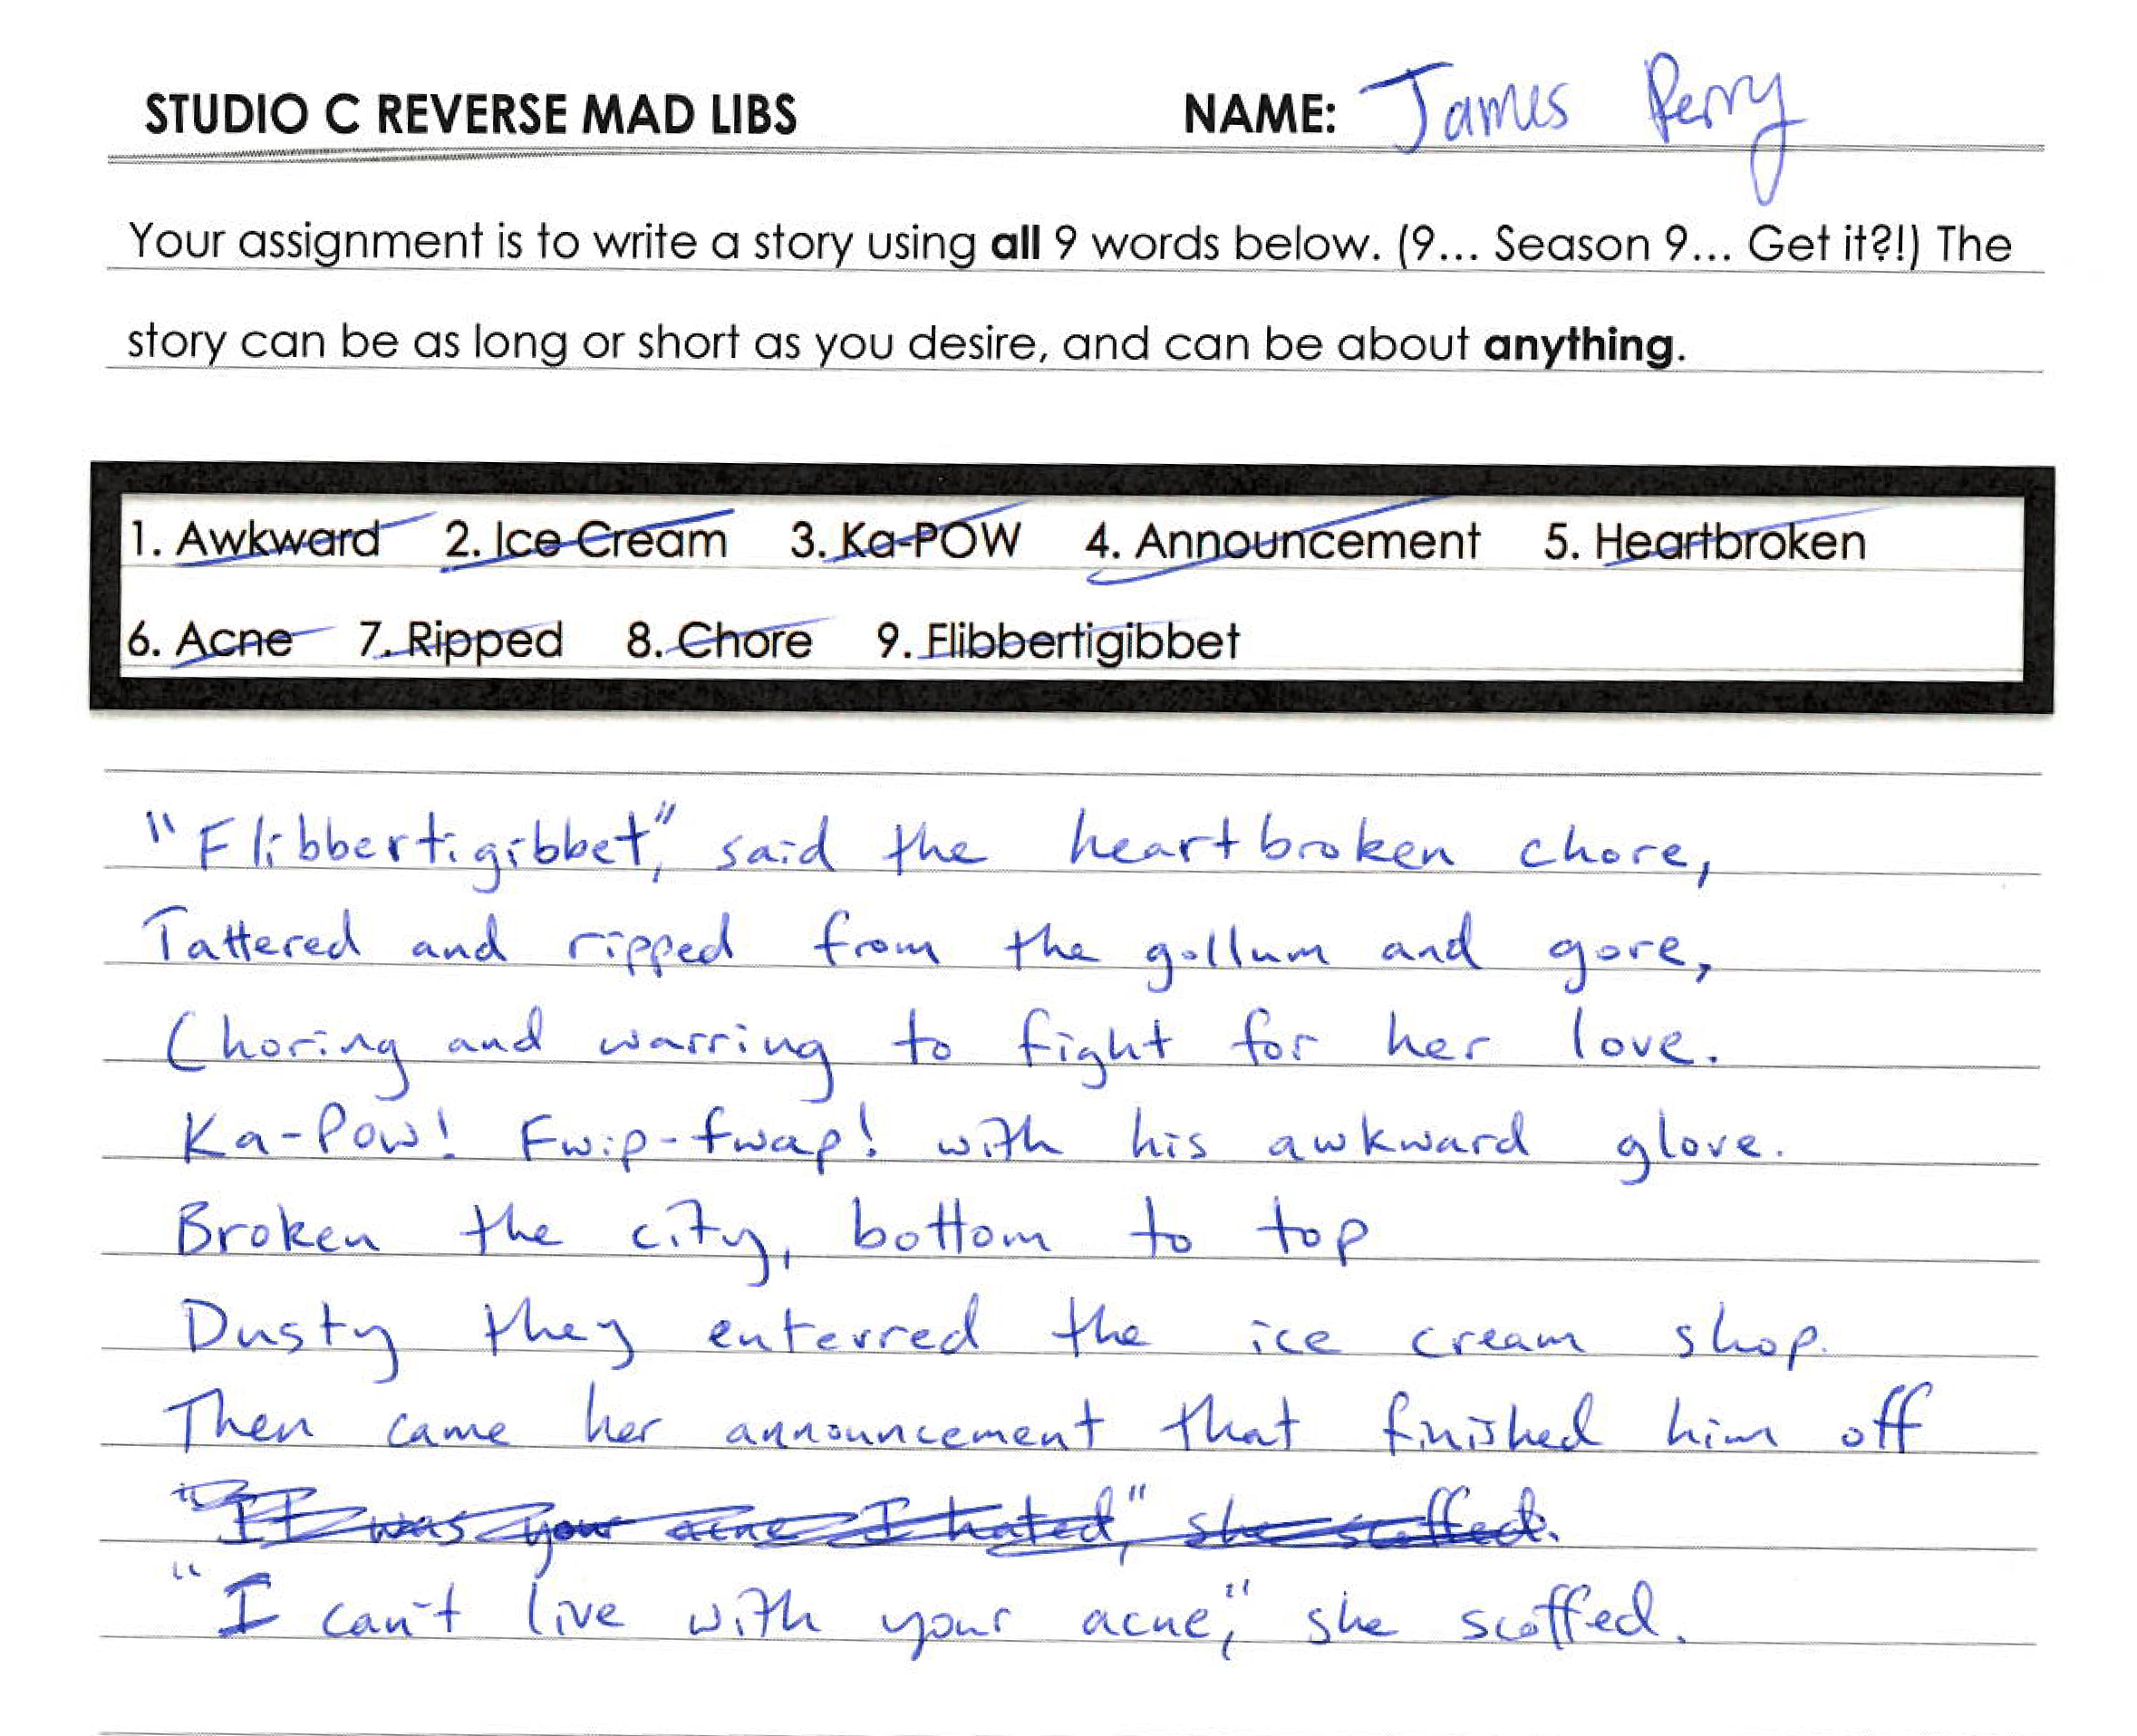 STUDIO C REVERSE MAD LIBS NAME: James Perry
Your assignment is to write a story using all 9 words below. (9... Season 9... Get it?!) The
story can be as long or short as you desire, and can be about anything.
1. Awkward 2. Ice Cream 3. Ka-POW 4. Announcement 5. Heartbroken
6. Acne 7. Ripped 8. Chore 9. Flibbertigibbet
"Flibbertigibbet," said the heartbroken chore,
Tattered and ripped from the gollum and gore,
Choring and warring to fight for her love.
Ka-Pow! Fwip-fwap! with his awkward glove.
Broken the city, bottom to top
Dusty they enterred the ice cream shop.
Then came her announcement that finished him off
"It was your acne I hated," she scoffed.
"I can't live with your acne," she scoffed.